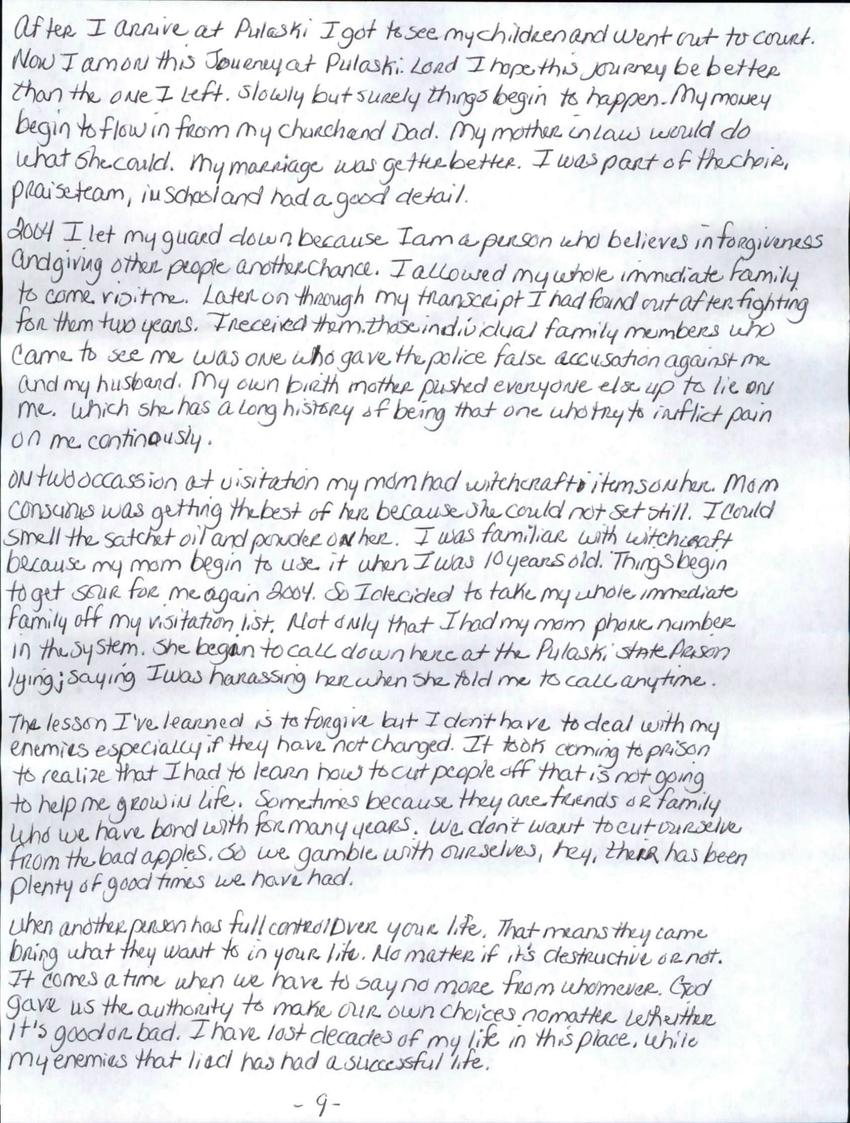 After I arrive at Pulaski I got to see my children and went out to court.
Now I am on this Joueney at Pulaski. Lord I hope this journey be better
than the one I left. Slowly but surely things begin to happen. My money
begin to flow in from my church and Dad. My mother in law would do
what she could. My marriage was getter better. I was part of the choir,
praise team, in school and had a good detail.
2004 I let my guard down because I am a person who believes in forgiveness
and giving other people another chance. I allowed my whole immediate family
to come visit me. Later on through my transcript I had found out after fighting
for them two years. I received them. those individual family members who
came to see me was one who gave the police false accusation against me
and my husband. My own birth mother pushed everyone else up to lie on
me. Which she has a long history of being that one who try to inflict pain
on me continously.
ON two occassion at visitation my mom had witchcraft items on her. Mom
conscinis was getting the best of her because she could not set still. I could
smell the satchet oil and powder on her. I was familiar with witchcraft
because my mom begin to use it when I was 10 years old. Things begin
to get sour for me again 2004. So I decided to take my whole immediate
family off my visitation list. Not only that I had my mom phone number
in the system. She began to call down here at the Pulaski state Person
lying; saying I was harassing her when she told me to call anytime.
The lesson I've learned is to forgive but I don't have to deal with my
enemies especially if they have not changed. It took coming to prison
to realize that I had to learn how to cut people off that is not going
to help me grow in life. Sometimes because they are friends or family
who we have bond with for many years. We don't want to cut ourselve
from the bad apples. So we gamble with ourselves, hey, their has been
plenty of good times we have had.
When another person has full control Over your life. That means they came
bring what they want to in your life. No matter if it's destructive or not.
It comes a time when we have to say no more from whomever. God
gave us the authority to make our own choices nomatter whether
it's good or bad. I have lost decades of my life in this place, while
my enemies that lied has had a successful life.
- 9 -